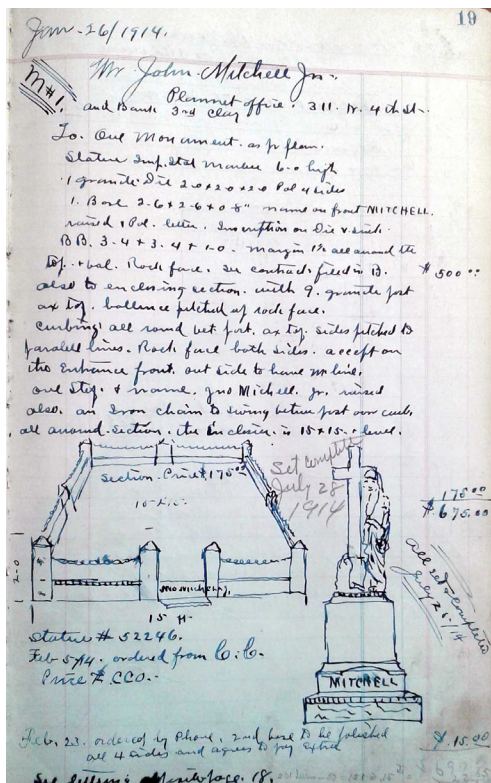 19
Jan-26/1914.
Mr John Mitchell Jr-
M#1.
Plannet office. 311. N. 4th St.
and Bank 3rd Clay
To. One Monument. as pr plan.
Statue Imp. Stat marble 6-0 high
1 granite Die 2-0 x 2-0 x 2-0 Pol 4 sides
1. Base 2-6 x 2-6 x 0-8" name on front MITCHELL.
raised & Pol. letter. Inscription on Die
B B. 3-4 x 3-4 x 1-0. margin all around the
top. & bal. Rock face. see contract filed in B.
$500 00
also to enclosing section. with 9. granite post
ax top. ballence pitched up rock face.
curbing all round bet post. ax top. sides pitched to
paralell lines. Rock face both sides. accept on
the Entrance front. out side to have no line.
one Step. & name. Jno Michell. Jr. raised
also. an Iron chain to swing between post over curb.
all around. Section. the Inclosure is 15 x 15. level.
Section. Price $175 00
Set complete
July 28
1914
175 00
$.675.00
all set & completed
July 28. 14
2-0
Jno Michell Jr.
15 ft.
MITCHELL
Statue # 52246.
Feb 5/14. ordered from C. C.
Price $ CCO.-
Feb. 23. ordered by Phone. 2nd base to be polished
all 4 sides and agrees to pay extra
$.15.00
See lettering opposite page. 18.